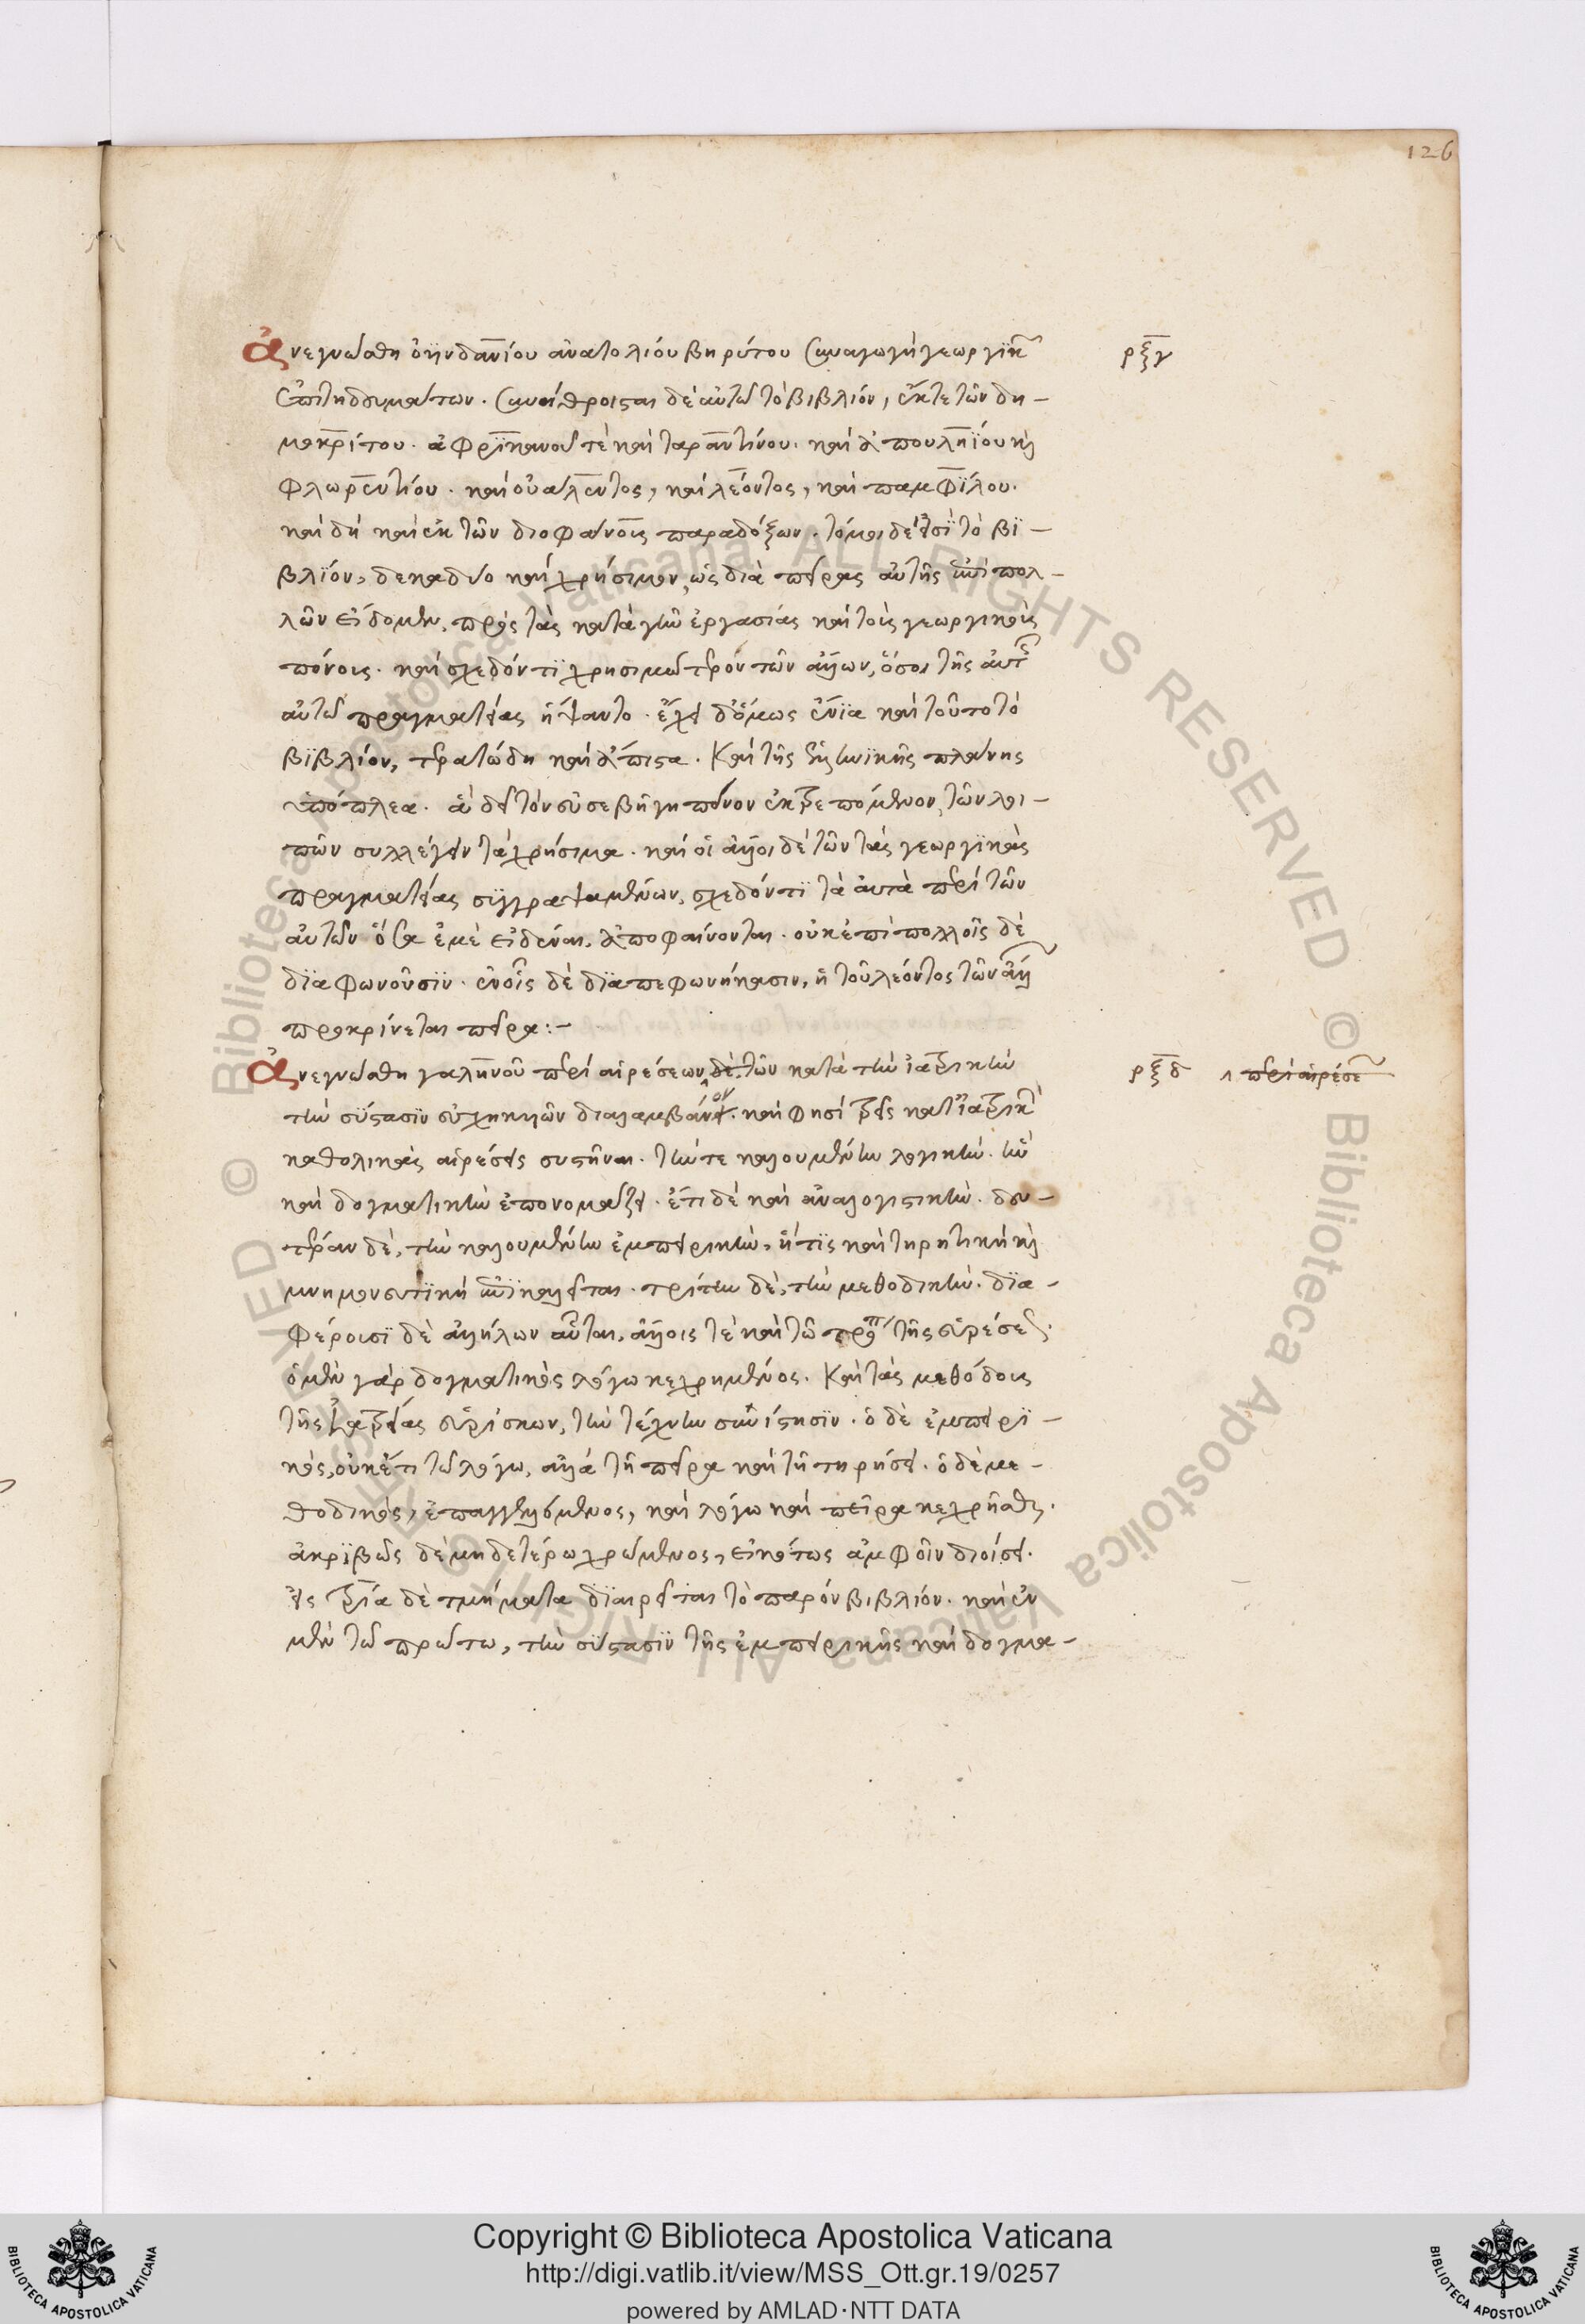 126
ἀνεγνώσθη οὐϊνδανίου ἀνατολίου βηρύτου συναγωγὴ γεωργικῶν ρξγ
ἐπιτηδευμάτων. συνήθροισται δὲ αὐτῶ τὸ βιβλίον, ἔκ τε τῶν δη-
μοκρίτου. ἀφρικανοῦ τὲ καὶ ταραντίνου. καὶ ἀπουληΐου καὶ
φλωρεντίου. καὶ οὐάλεντος, καὶ λέοντος, καὶ παμφίλου.
καὶ δὴ καὶ ἐκ τῶν διοφάνους παραδόξων. τόμοι δέ εἰσϊ τὸ βϊ-
βλίον, δεκαδύο καὶ χρήσιμον, ὡς διὰ πείρας αὐτῆς ἐπὶ πολ-
λῶν εἴδομεν, πρὸς τὰς κατὰ γῆν ἐργασίας καὶ τοὺς γεωργικοὺς
πόνους. καὶ σχεδόν τϊ χρησιμώτερον τῶν ἄλλων, ὅσοι τῆς αὐτῆς
αὐτῶ πραγματείας ἥψαντο. ἔχει δ' ὅμως ἔνϊα καὶ τοῦτο τὸ
βϊβλίον, τερατώδη καὶ ἄπιστα. καὶ τῆς ἑλληνϊκῆς πλάνης
ὑπόπλεα. ἃ δεῖ τὸν εὐσεβῆ γηπόνον ἐκτρεπόμενον, τῶν λοι-
πῶν συλλέγειν τὰ χρήσιμα. καὶ οἱ ἄλλοι δὲ τῶν τὰς γεωργϊκὰς
πραγματείας συγγραψαμένων, σχεδόν τϊ τὰ αὐτὰ περὶ τῶν
αὐτῶν ὅσα ἐμὲ εἰδέναι, ἀποφαίνονται. οὐκ ἐπὶ πολλοῖς δὲ
δϊαφωνοῦσϊν. ἐν οἷς δὲ δϊαπεφωνήκασιν, ἡ τοῦ λέοντος τῶν ἄλλων
προκρίνεται πεῖρα:-
ἀνεγνώσθη γαληνοῦ περὶ αἱρέσεων, δὲ. τῶν κατὰ τὴν ἰατρικὴν ρξδ περὶ αἱρέσεων
τὴν σύστασϊν εὐχηκυῶν διαλαμβάνον. καὶ φησὶ τρεῖς κατ' ἰατρικὴν
καθολικὰς αἱρέσεις συστῆναι. τήν τε καλουμένην λογικήν. ἣν
καὶ δογματικὴν ἐπονομάζει. ἔτι δὲ καὶ ἀναλογιστικήν. δευ-
τέραν δὲ, τὴν καλουμένην ἐμπειρικὴν, ἥτϊς καὶ τηρητικὴ καὶ
μνημονευτϊκὴ ἐπϊκαλεῖται. τρίτην δὲ, τὴν μεθοδικήν. δϊα-
φέρουσϊ δὲ ἀλλήλων αὗται, ἄλλοις τὲ καὶ τῶ τρόπω τῆς εὑρέσεως.
ὁ μὲν γὰρ δογματικὸς λόγω κεχρημένος. καὶ τὰς μεθόδους
τῆς ἰατρείας εὑρίσκων, τὴν τέχνην συνίστησϊν. ὁ δὲ ἐμπειρϊ-
κὸς, οὐκ ἔτι τῶ λόγω, ἀλλὰ τῆ πείρα καὶ τῆ τηρήσει. ὁ δὲ με-
θοδικὸς, ἐπαγγελλόμενος, καὶ λόγω καὶ πεῖρα κεχρῆσθαι.
ἀκρϊβῶς δὲ μηδετέρω χρώμενος, εἰκότως ἀμφοῖν διοίσει.
εἰς τρία δὲ τμήματα δϊαιρεῖται τὸ παρὸν βιβλίον. καὶ ἐν
μὲν τῶ πρώτω, τὴν σύστασϊν τῆς ἐμπειρικῆς καὶ δογμα-
Copyright © Biblioteca Apostolica Vaticana
http://digi.vatlib.it/view/MSS_Ott.gr.19/0257
powered by AMLAD·NTT DATA